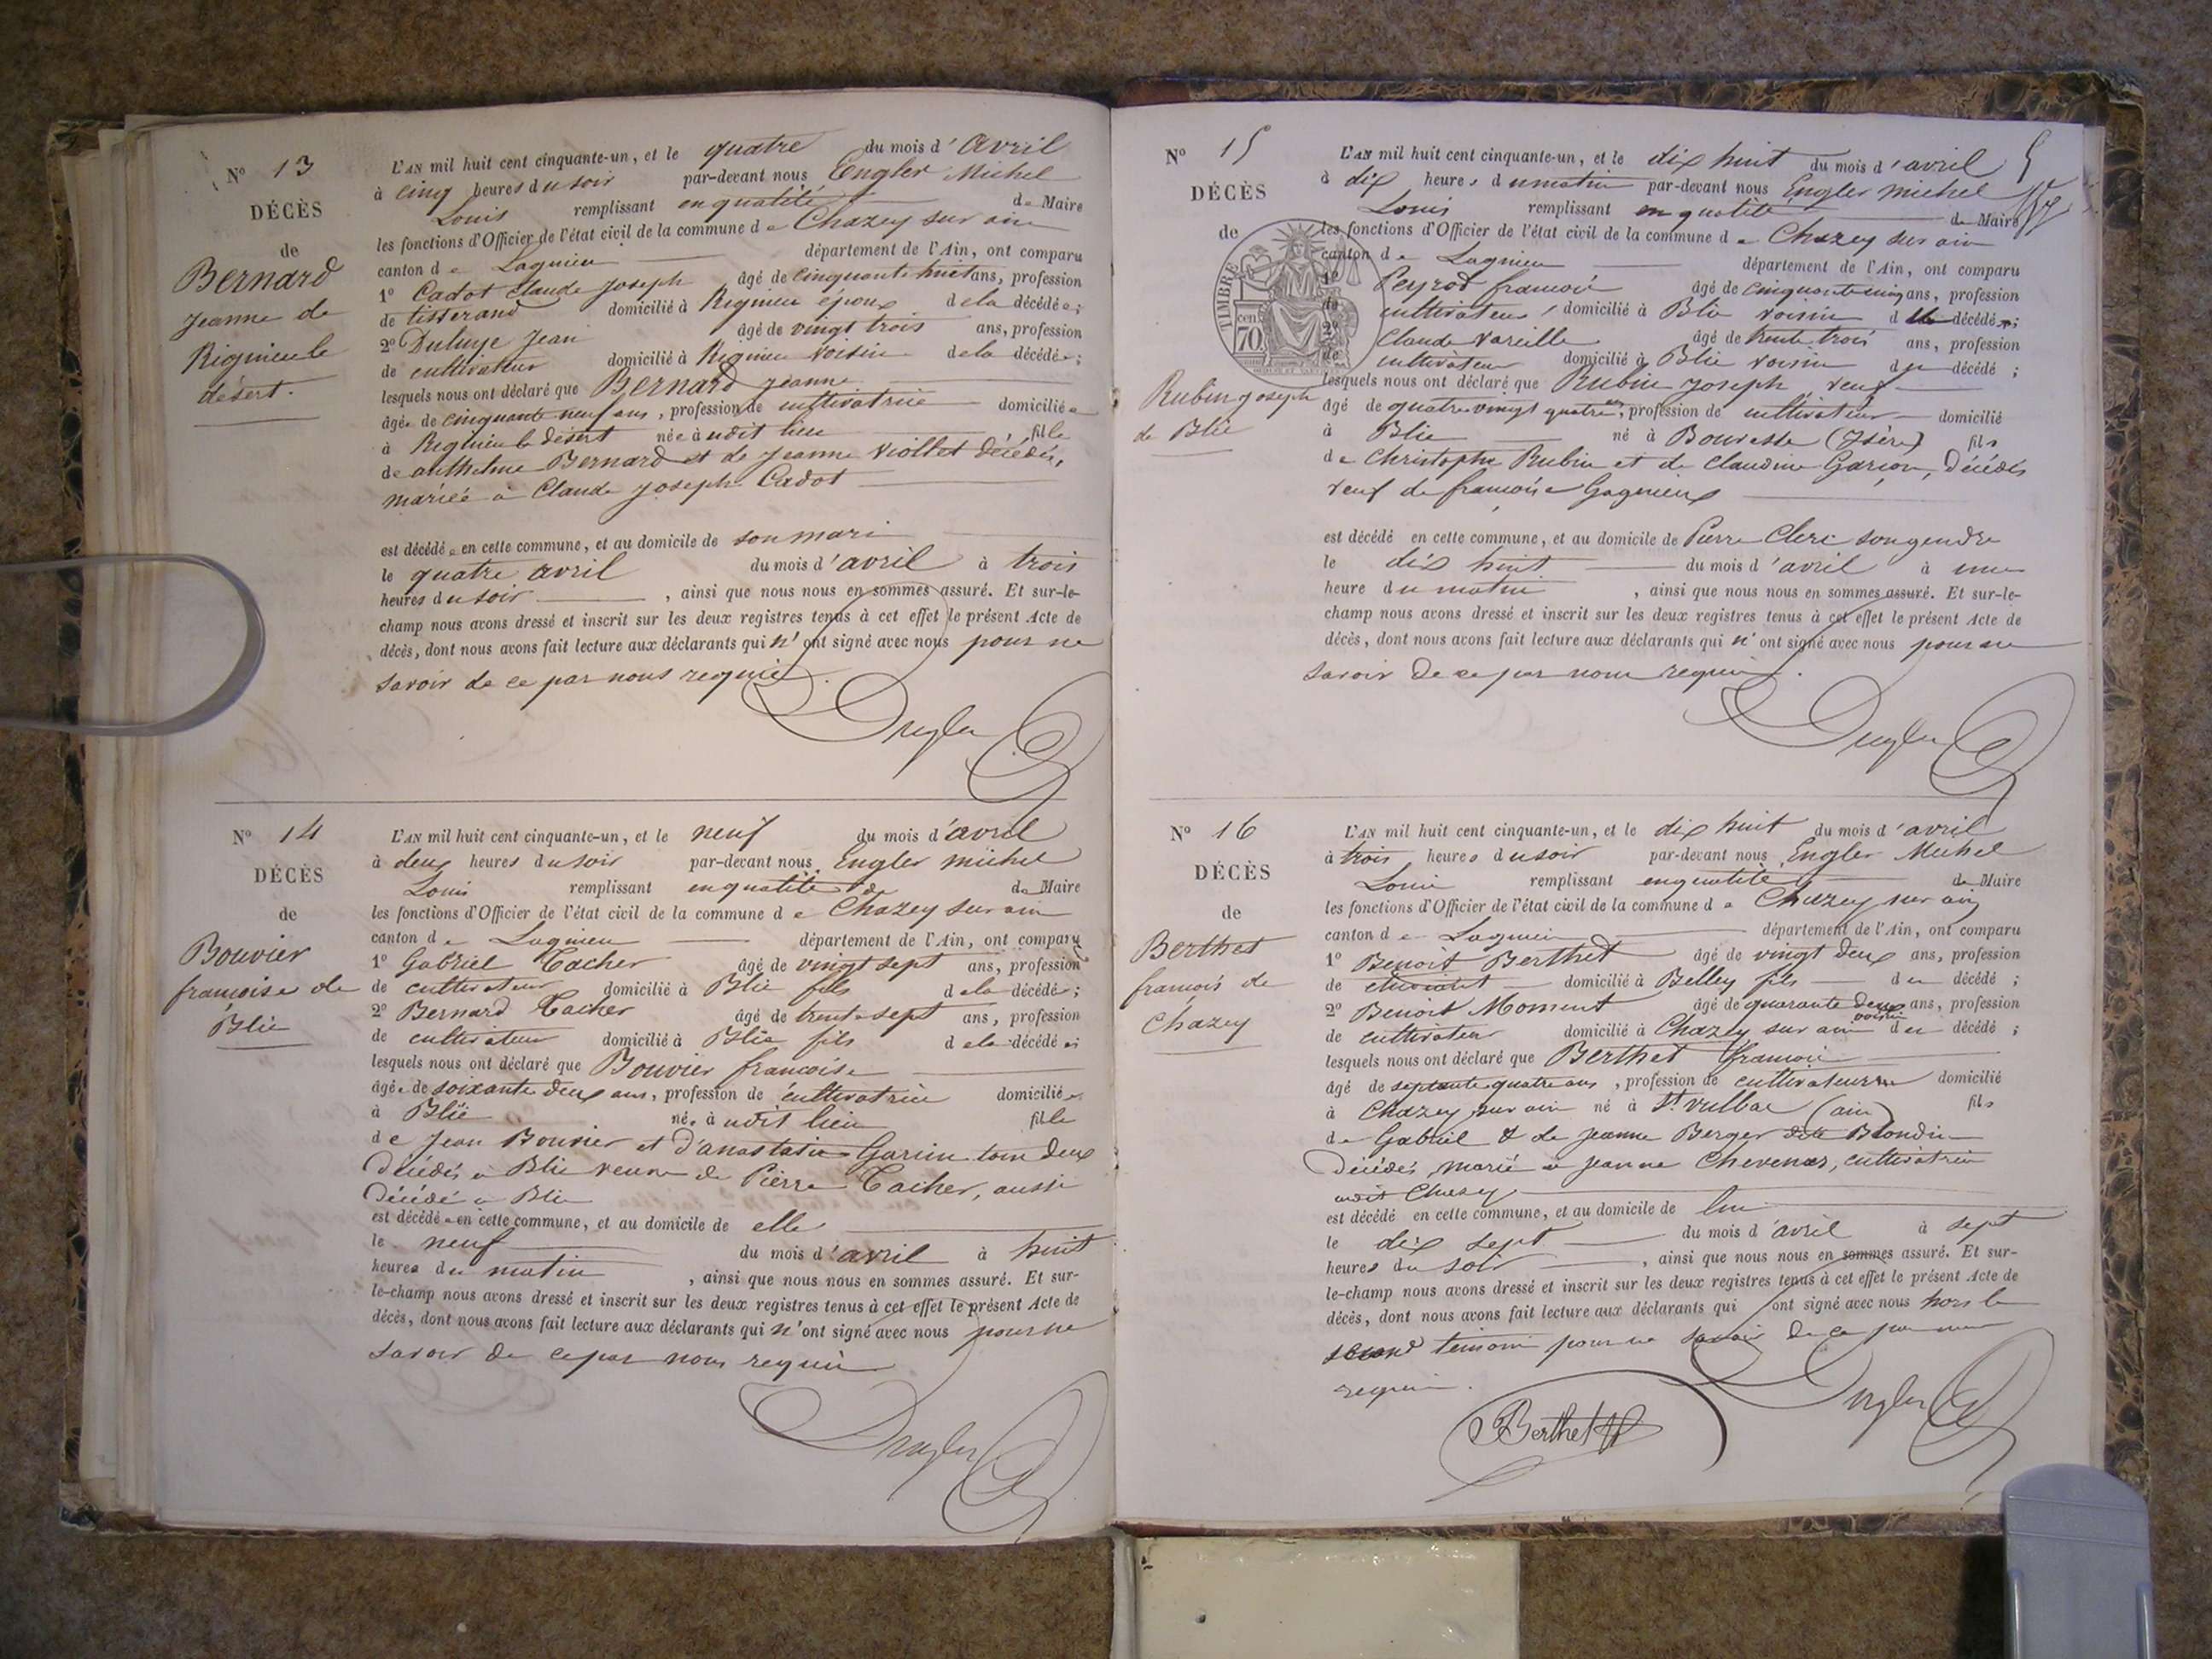 N° 13
DÉCÈS
de
Bernard
Jeanne de
Rignieu le
désert.
L'AN mil huit cent cinquante-un, et le quatre du mois d'avril
à cinq heures du soir par-devant nous Engler Michel
Louis remplissant en qualité de Maire
les fonctions d'Officier de l'état civil de la commune de Chazey sur ain
canton de Lagnieu département de l'Ain, ont comparu
1° Cadot Claude Joseph âgé de cinquante huit ans, profession
de tisserand domicilié à Rignieu époux de la décédée;
2° Duluye Jean âgé de vingt trois ans, profession
de cultivateur domicilié à Rignieu voisin de la décédée;
lesquels nous ont déclaré que Bernard Jeanne
âgée de cinquante neuf ans, profession de cultivatrice domiciliée
à Rignieu le désert née à udit lieu, fille
de anthelme Bernard et de Jeanne Viollet décédés,
mariée à Claude Joseph Cadot
est décédée en cette commune, et au domicile de son mari
le quatre avril du mois d'avril à trois
heures du soir, ainsi que nous nous en sommes assuré. Et sur-le-
champ nous avons dressé et inscrit sur les deux registres tenus à cet effet le présent Acte de
décès, dont nous avons fait lecture aux déclarants qui n'ont signé avec nous pour ne
savoir de ce par nous requis.
Engler
N° 14
DÉCÈS
de
Bouvier
françoise de
Blie
L'AN mil huit cent cinquante-un, et le neuf du mois d'avril
à deux heures du soir par-devant nous Engler michel
Louis remplissant en qualité de de Maire
les fonctions d'Officier de l'état civil de la commune de Chazey sur ain
canton de Lagnieu département de l'Ain, ont comparu
1° Gabriel Cacher âgé de vingt sept ans, profession
de cultivateur domicilié à Blie fils de la décédée;
2° Bernard Cacher âgé de trente sept ans, profession
de cultivateur domicilié à Blie fils de la décédée;
lesquels nous ont déclaré que Bouvier francoise
âgée de soixante deux ans, profession de cultivatrice domiciliée
à Blie née à udit lieu fille
de Jean Bouvier et d'anastasie Garin tous deux
décédés à Blie veuve de Pierre Cacher, aussi
décédé à Blie
est décédée en cette commune, et au domicile de elle
le neuf du mois d'avril à huit
heures du matin, ainsi que nous nous en sommes assuré. Et sur-
le-champ nous avons dressé et inscrit sur les deux registres tenus à cet effet le présent Acte de
décès, dont nous avons fait lecture aux déclarants qui n'ont signé avec nous pour ne
savoir de ce par nous requis
Engler
N° 15
DÉCÈS
de
TIMBRE
cen. 70
Rubin joseph
de Blie
L'AN mil huit cent cinquante-un, et le dix huit du mois d'avril
à dix heures du matin par-devant nous Engler michel
Louis remplissant en qualité de Maire
les fonctions d'Officier de l'état civil de la commune de Chazey sur ain
canton de Lagnieu département de l'Ain, ont comparu
1° Peyrod francois âgé de cinquante cinq ans, profession
de cultivateur, domicilié à Blie voisin du décédé;
2° Claude Vareille âgé de trente trois ans, profession
de cultivateur domicilié à Blie voisin du décédé;
lesquels nous ont déclaré que Rubin joseph, veuf
âgé de quatre vingt quatre ans, profession de cultivateur domicilié
à Blie né à Bouvesse (Isère) fils
de Christophe Rubin et de Claudine Garçon, décédés
veuf de françoise Gagnieux
est décédé en cette commune, et au domicile de Pierre Clerc son gendre
le dix huit du mois d'avril à une
heure du matin, ainsi que nous nous en sommes assuré. Et sur-le-
champ nous avons dressé et inscrit sur les deux registres tenus à cet effet le présent Acte de
décès, dont nous avons fait lecture aux déclarants qui n'ont signé avec nous pour ne
savoir de ce par nous requis.
Engler
N° 16
DÉCÈS
de
Berthet
francois de
Chazey
L'AN mil huit cent cinquante-un, et le dix huit du mois d'avril
à trois heures du soir par-devant nous Engler Michel
Louis remplissant en qualité de Maire
les fonctions d'Officier de l'état civil de la commune de Chazey sur ain
canton de Lagnieu département de l'Ain, ont comparu
1° Benoit Berthet âgé de vingt deux ans, profession
de étudiant domicilié à Belley fils du décédé;
2° Benoit Moment âgé de quarante deux ans, profession
de cultivateur domicilié à Chazey sur ain voisin du décédé;
lesquels nous ont déclaré que Berthet francois
âgé de septante quatre ans, profession de cultivateur domicilié
à Chazey sur ain né à St. vulbac (ain) fils
de Gabriel & de jeanne Berger dite Blondin
décédés, marié à jeanne Chevenas, cultivatrice
audit Chazey
est décédé en cette commune, et au domicile de lui
le dix sept du mois d'avril à sept
heures du soir, ainsi que nous nous en sommes assuré. Et sur-
le-champ nous avons dressé et inscrit sur les deux registres tenus à cet effet le présent Acte de
décès, dont nous avons fait lecture aux déclarants qui ont signé avec nous hors le
second témoin pour ne savoir de ce par nous
requis.
Berthet
Engler